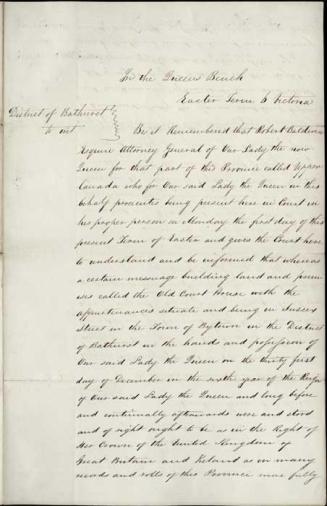 In the Queens Bench
Easter Term 6 Victoria
District of Bathurst
to wit
Be it Remembered that Robert Baldwin
Esquire Attorney General of Our Lady the now
Queen for that part of this Province called Upper
Canada who for Our said Lady the Queen in this
behalf prosecutes being present here in Court in
his proper person on Monday the first day of this
present Term of Easter and gives the Court here
to understand and be informed that whereas
a certain messuage building land and premi
ses called the Old Court House with the
appurtenances situate and being in Sussex
Street in the Town of Bytown in the District
of Bathurst in the hands and possession of
Our said Lady the Queen on the thirty first
day of December in the sixth year of the Reign
of Our said Lady the Queen and long before
and continually afterwards were and stood
and of right ought to be as in the Right of
Her Crown of the United Kingdom of
Great Britain and Ireland as in many
records and rolls of this Province more fully